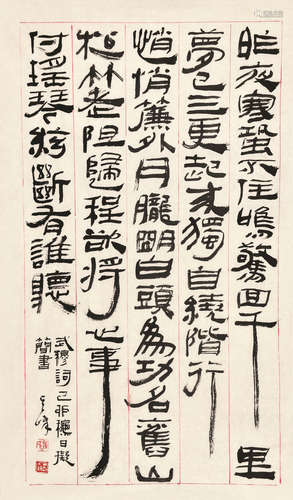 昨夜寒蛩不住鳴驚回千里
夢已三更起來獨自繞階行
悄悄簾外月朧明白頭為功名舊山
松林老阻歸程欲將心事
付瑶琴絃斷有誰聽
武穆詞己卯穐日擬
簡書 其峰